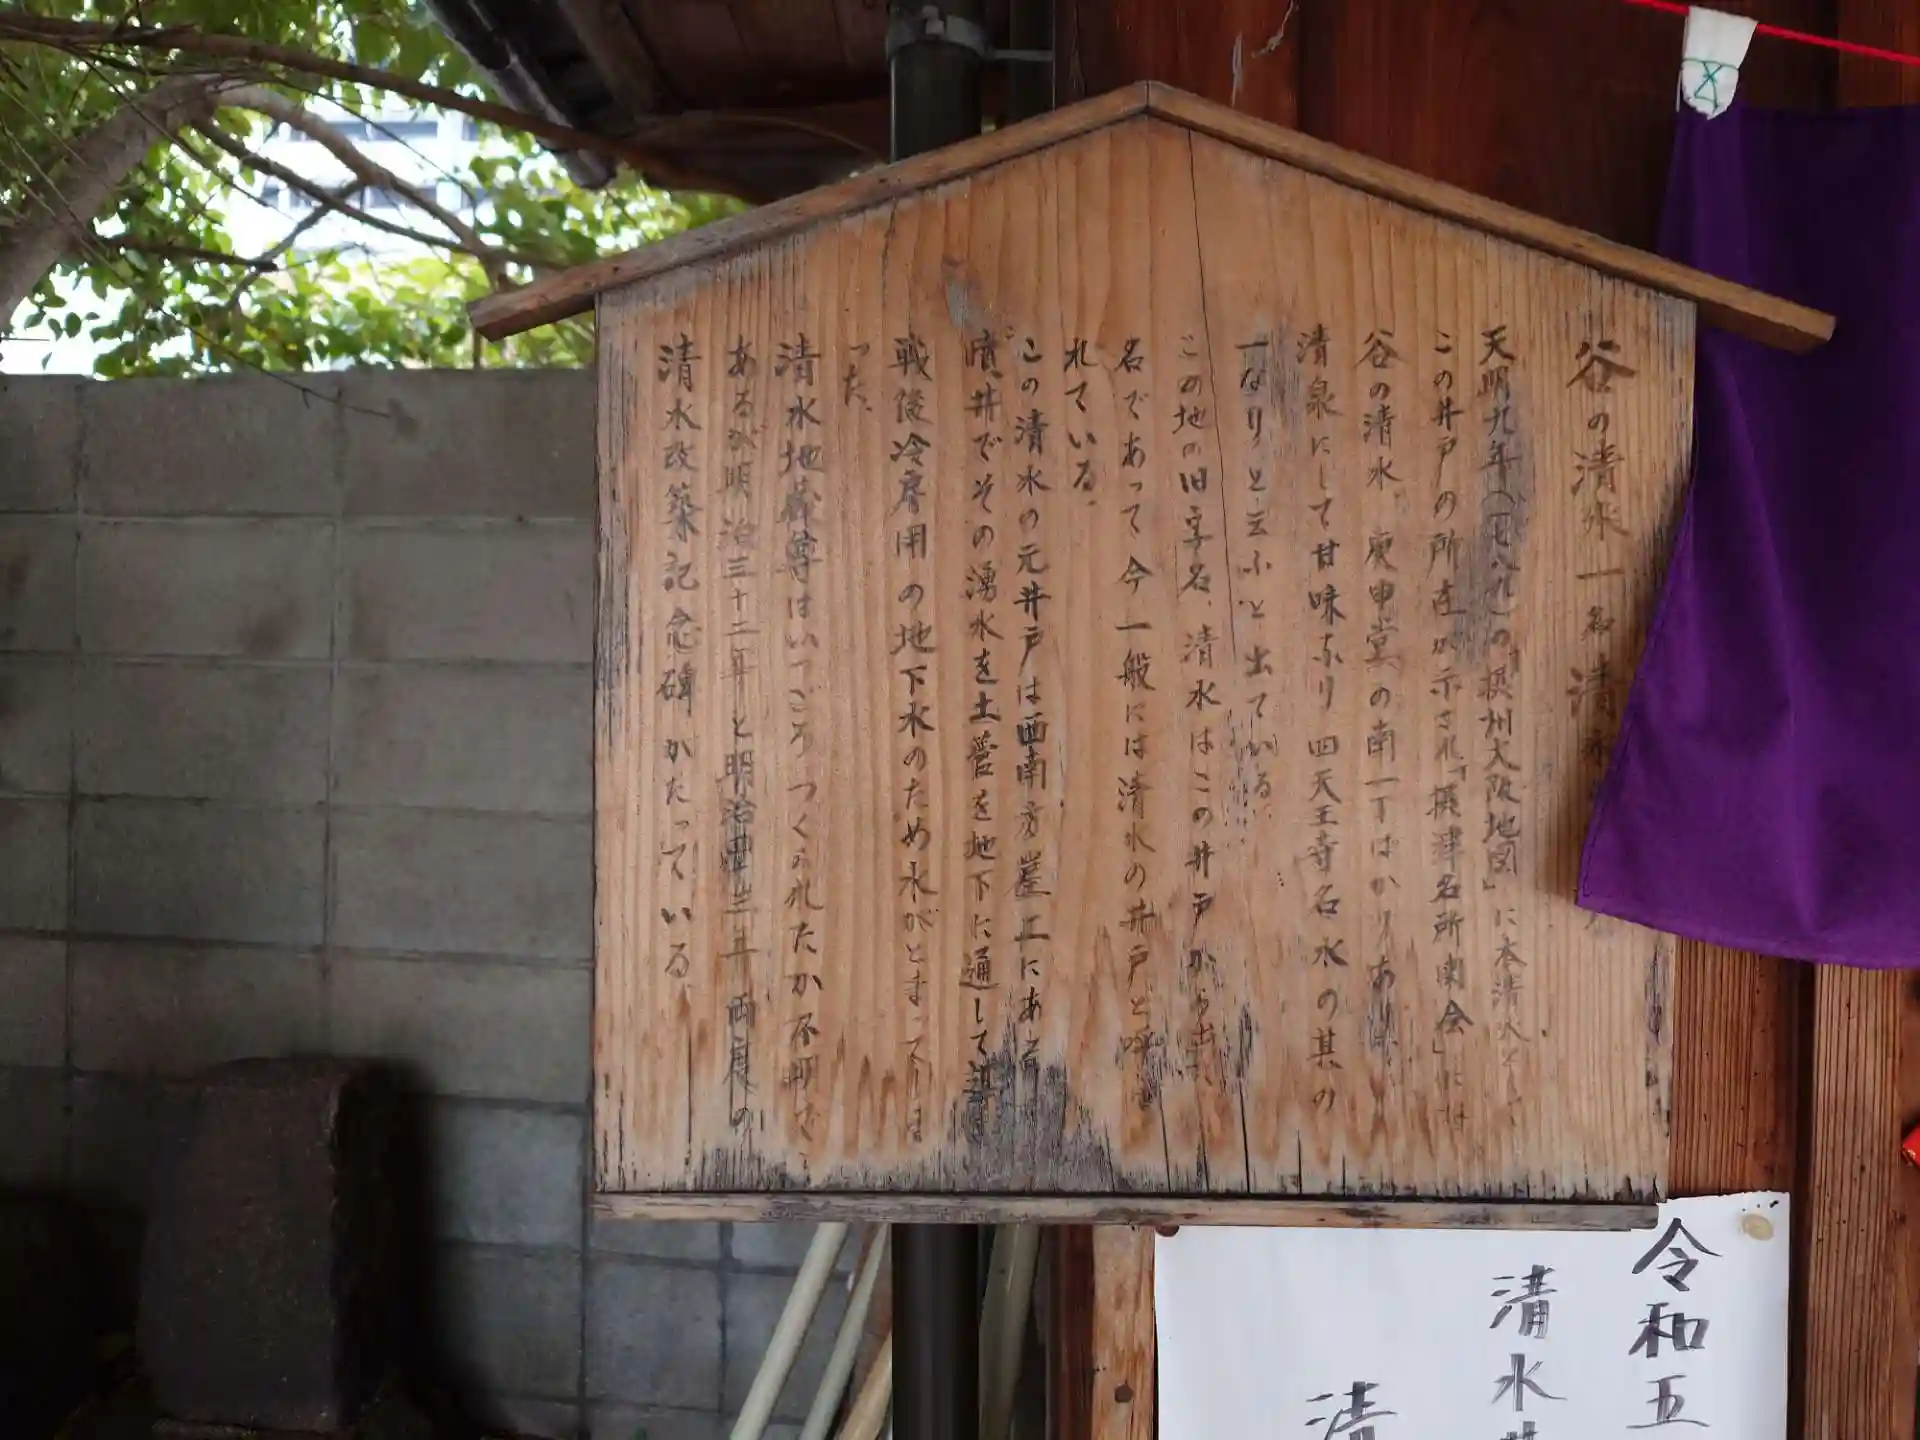 谷の清水 一名 清水
天明九年(一七八九)の「摂州大阪地図」に本清水として
この井戸の所在が示され「摂津名所図会」には
谷の清水 庚申堂の南一丁ばかりあり
清泉にして甘味なり 四天王寺名水の其の
一なりと云ふと出ている。
この地の旧字名、清水はこの井戸から出た
名であって今一般には清水の井戸と呼ば
れている。
この清水の元井戸は西南方崖上にある
噴井でその湧水を土管を地下に通して導き
戦後冷房用の地下水のため水がとまってしま
った。
清水地蔵尊はいつごろつくられたか不明で
あるが明治三十二年と明治四十三年両度の
清水改築記念碑がたっている
令和五
清水井
清